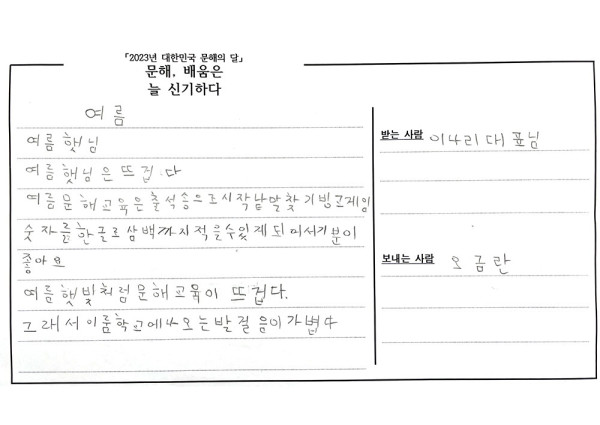 「2023년 대한민국 문해의 달」
문해, 배움은
늘 신기하다
여름
여름햇님
여름햇님은뜨겁다
여름문해교육은출석송으로시작낱말찾기빙고게임
숫자를한글로삼백까지적을수있제되어서기분이
좋아요
여름햇빛처럼문해교육이 뜨겁다.
그래서이룸학교에나오는발걸음이가볍다
받는 사람 이나리대표님
보내는 사람 오금란